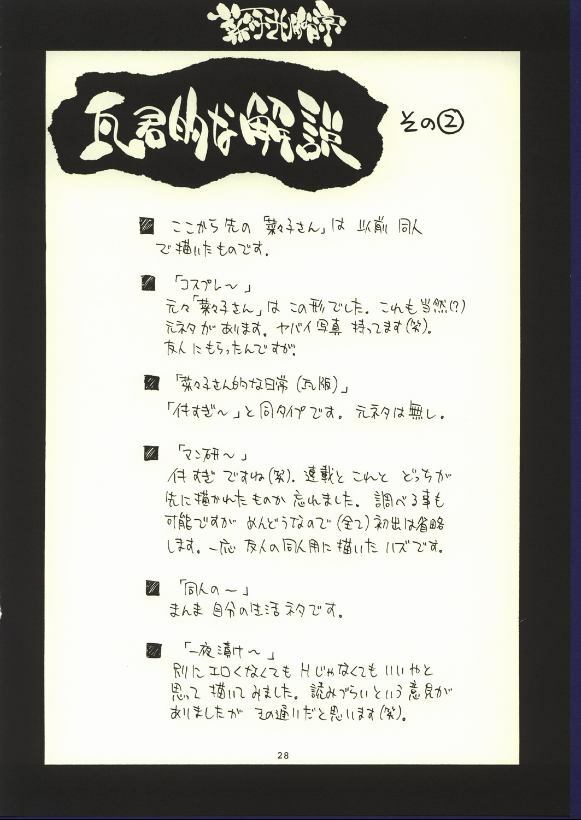 瓦君的な解説 その②
■ ここから先の「菜々子さん」は 以前 同人
で描いたものです。
■ 「コスプレ〜」
元々「菜々子さん」は この形でした。これも当然(?)
元ネタがあります。ヤバイ写真 持ってます(笑)。
友人にもらったんですが。
■ 「菜々子さん的な日常(瓦版)」
「付すぎ〜」と同タイプです。元ネタは無し。
■ 「マン研〜」
付すぎ ですね(笑)。連載と これと どっちが
先に描かれたものか 忘れました。調べる事も
可能ですが めんどうなので(全て)初出は省略
します。一応 友人の同人用に描いた ハズです。
■ 「同人の〜」
まんま 自分の生活ネタです。
■ 「一夜漬け〜」
別に エロくなくても Hじゃなくても いいやと
思って 描いて みました。読みづらいという 意見が
ありましたが その通りだと思います(笑)。
28